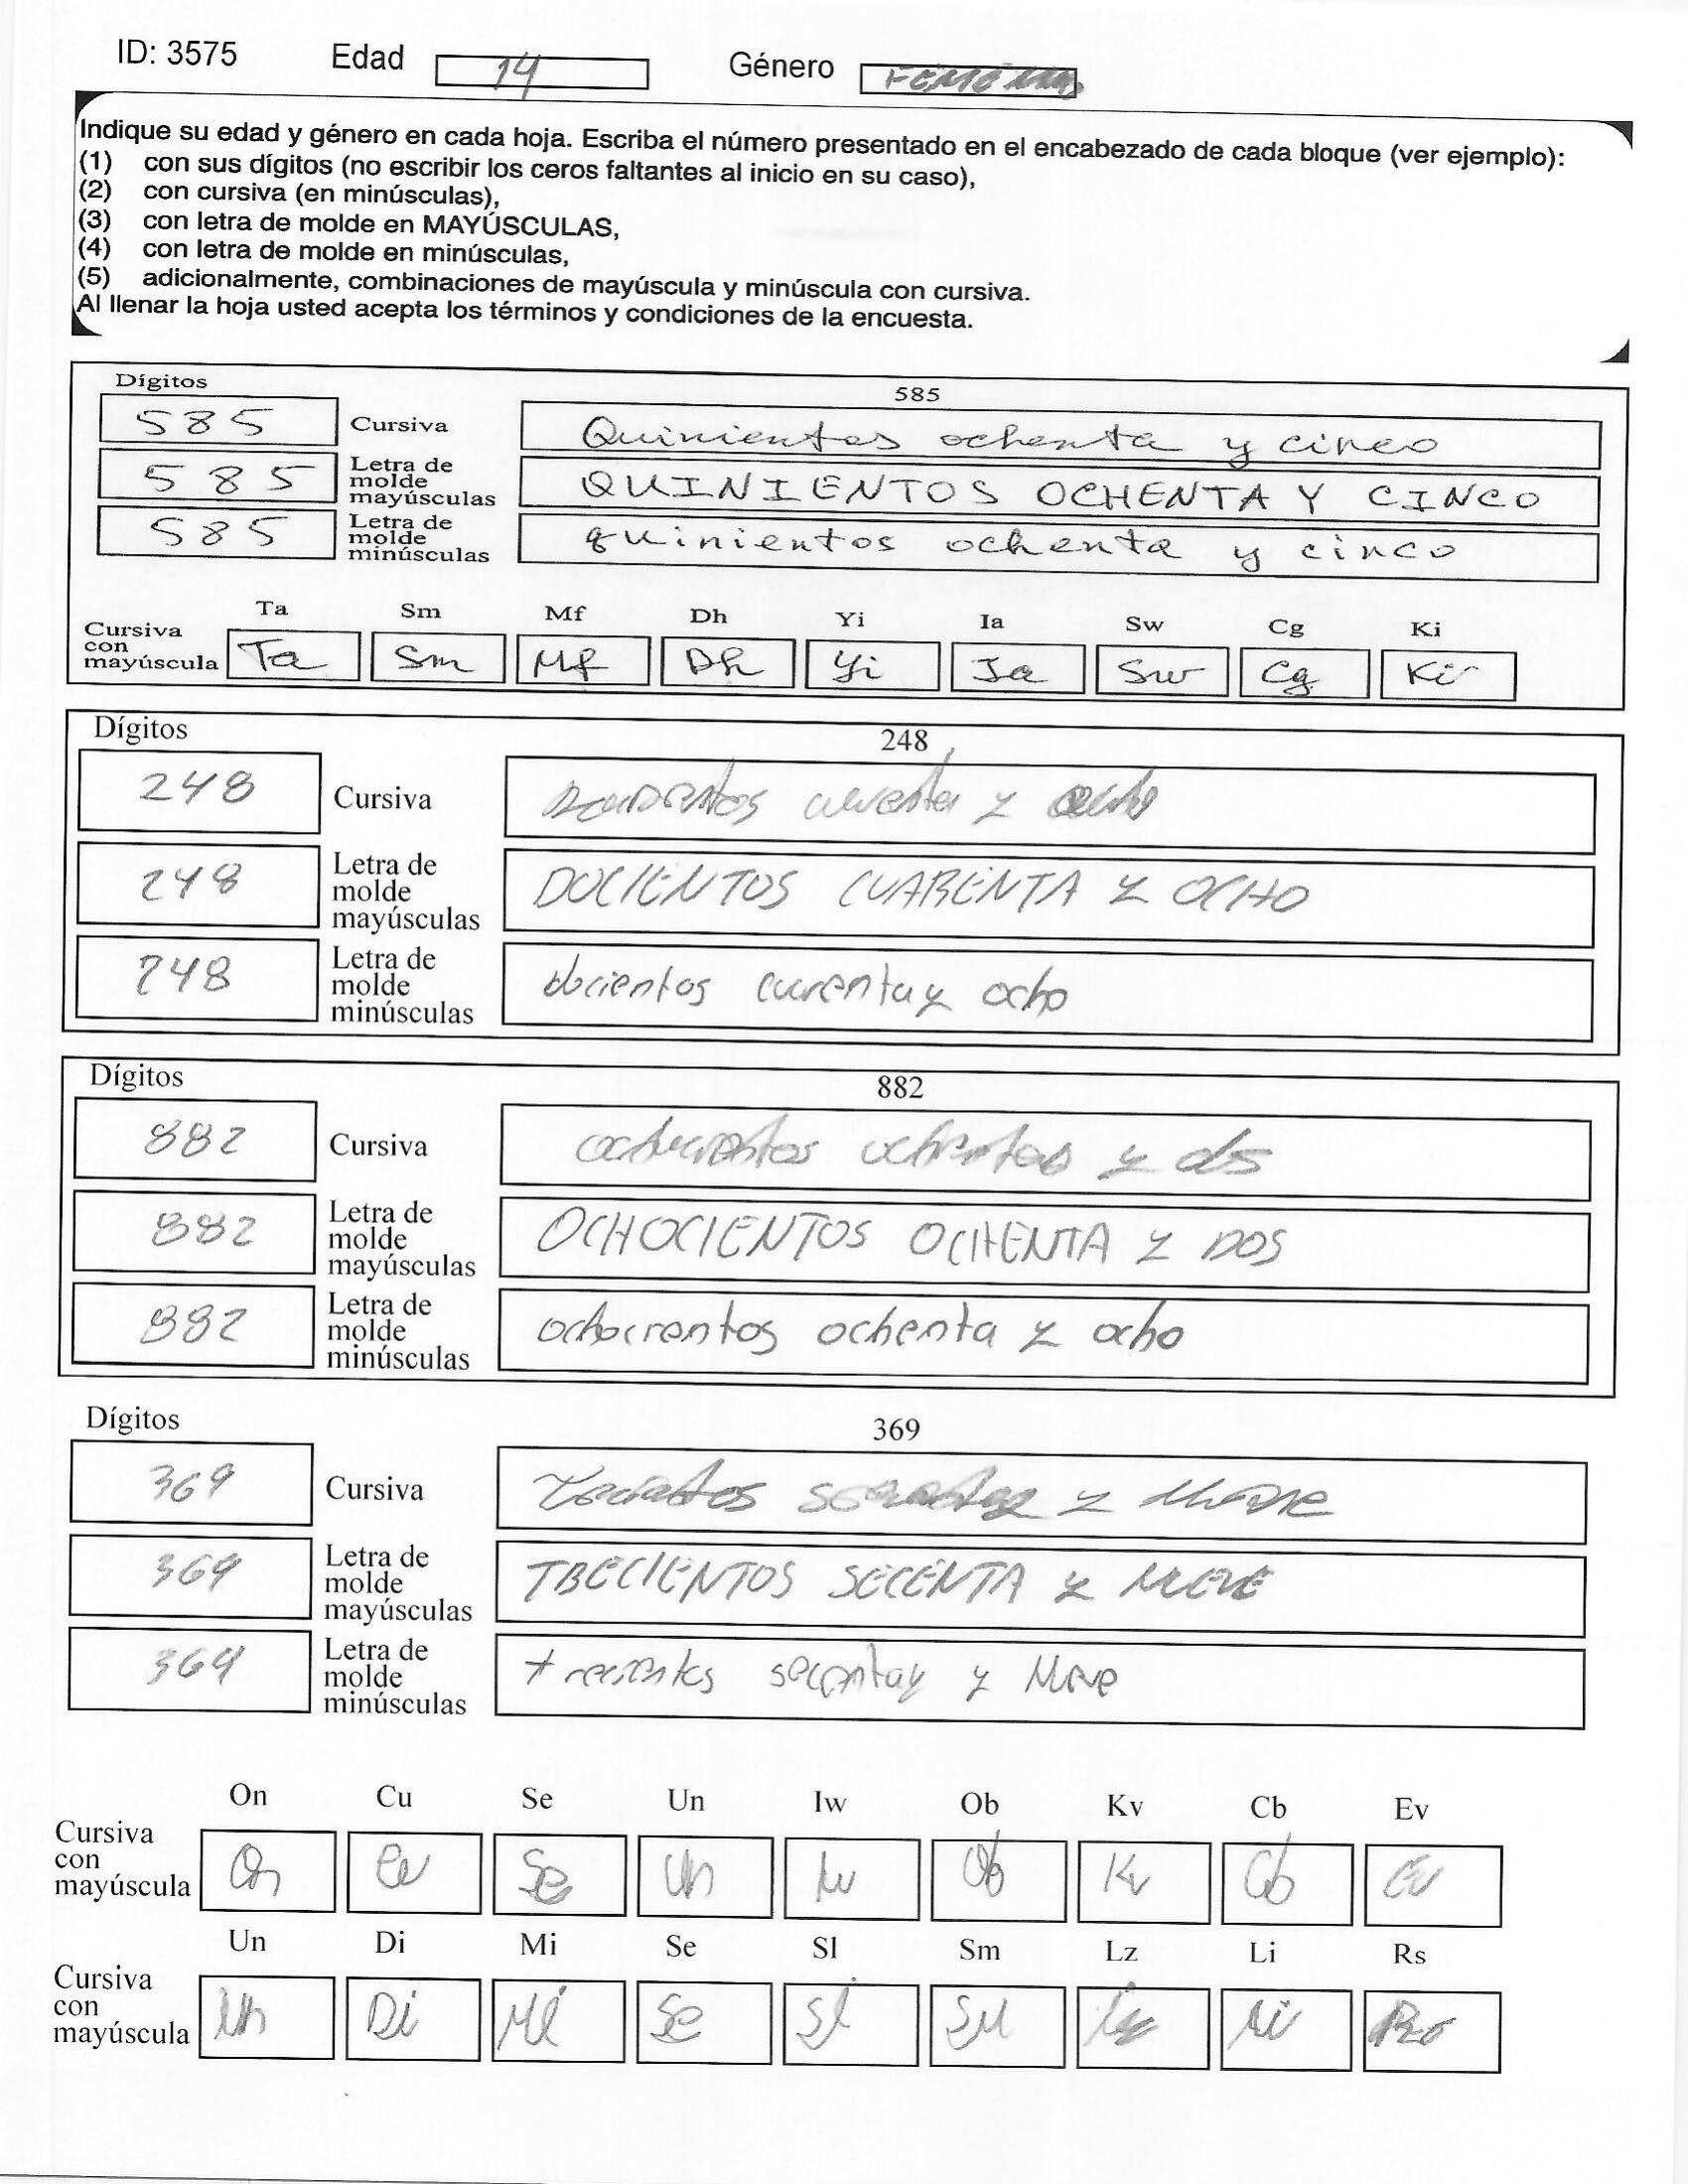 ID: 3575 Edad 14 Género
Indique su edad y género en cada hoja. Escriba el número presentado en el encabezado de cada bloque (ver ejemplo):
(1) con sus dígitos (no escribir los ceros faltantes al inicio en su caso),
(2) con cursiva (en minúsculas),
(3) con letra de molde en MAYÚSCULAS,
(4) con letra de molde en minúsculas,
(5) adicionalmente, combinaciones de mayúscula y minúscula con cursiva.
Al llenar la hoja usted acepta los términos y condiciones de la encuesta.
Dígitos 585
585 Cursiva Quinientos ochenta y cinco
585 Letra de molde mayúsculas QUINIENTOS OCHENTA Y CINCO
585 Letra de molde minúsculas quinientos ochenta y cinco
Ta Sm Mf Dh Yi Ia Sw Cg Ki
Cursiva con mayúscula Ta Sm Mf Dh Yi Ia Sw Cg Ki
Dígitos 248
248 Cursiva y
248 Letra de molde mayúsculas DOCIENTOS CUARENTA Y OCHO
248 Letra de molde minúsculas docientos y ocho
Dígitos 882
882 Cursiva y
882 Letra de molde mayúsculas OCHOCIENTOS OCHENTA Y DOS
882 Letra de molde minúsculas ochocientos ochenta y ocho
Dígitos 369
369 Cursiva y
369 Letra de molde mayúsculas TRECIENTOS SECENTA Y
369 Letra de molde minúsculas y
On Cu Se Un Iw Ob Kv Cb Ev
Cursiva con mayúscula On Cu Se Un Iw Ob Kv Cb Ev
Un Di Mi Se Sl Sm Lz Li Rs
Cursiva con mayúscula Un Di Mi Se Sl SM Li